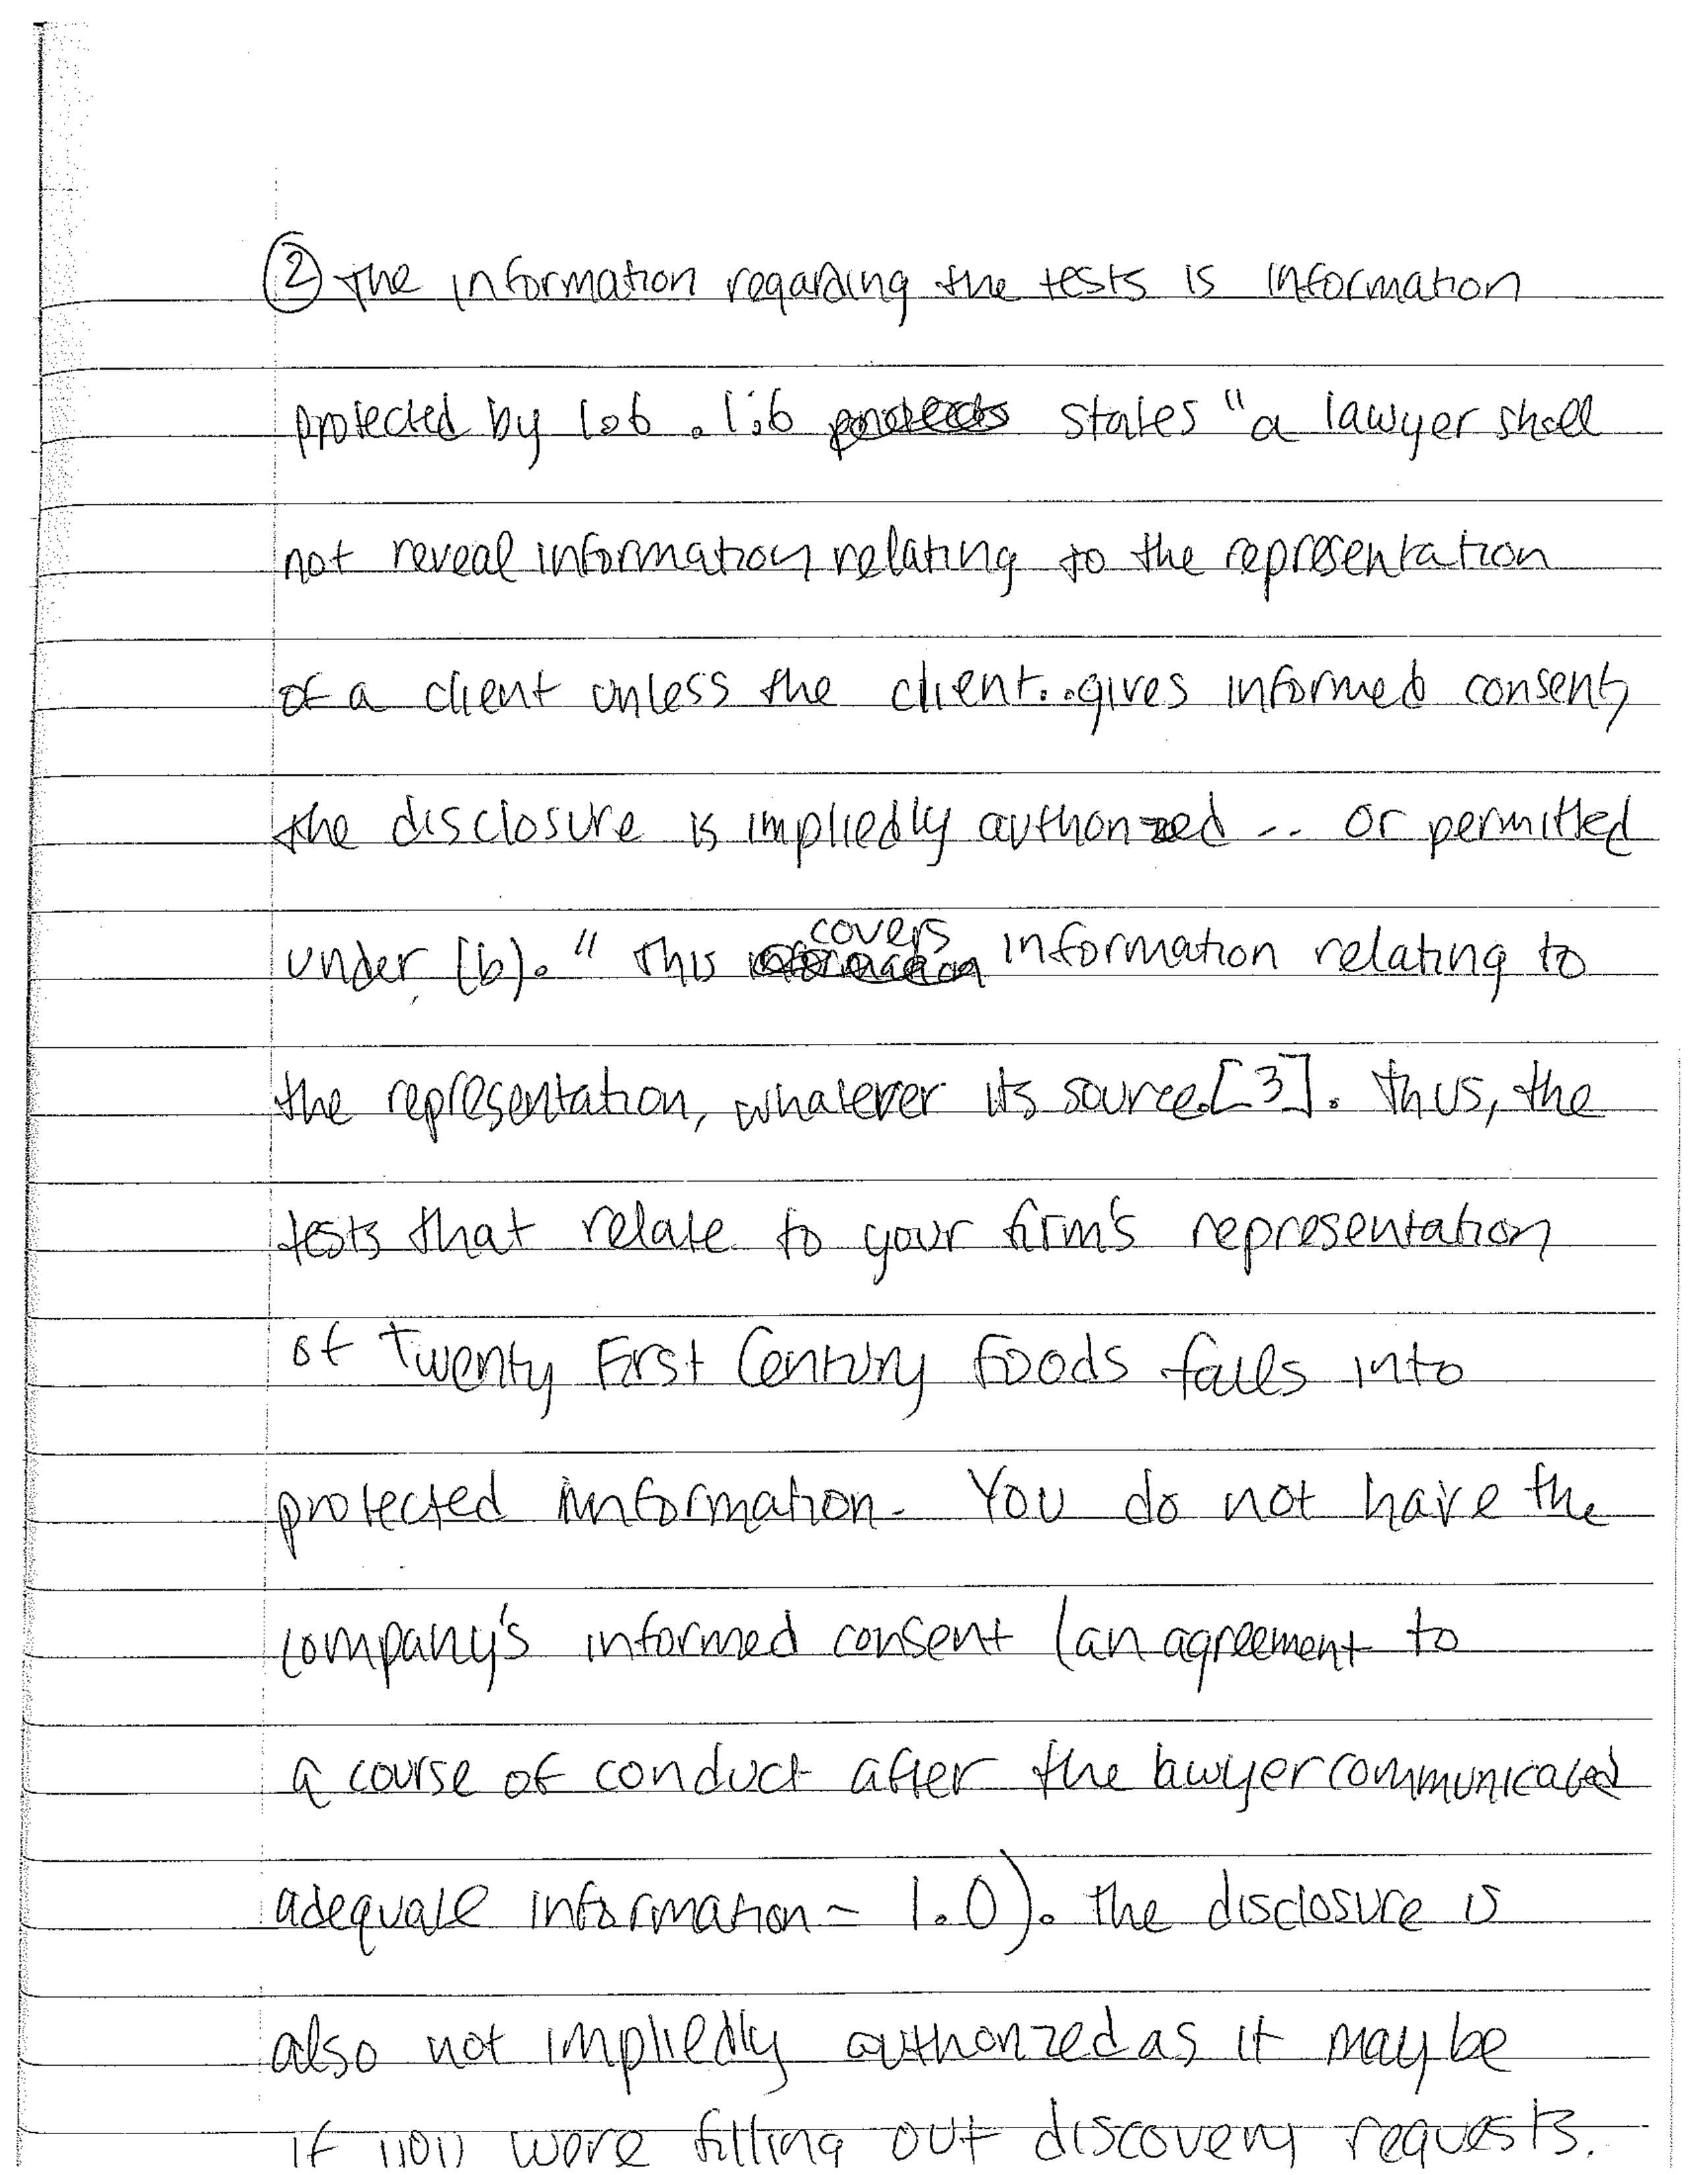 ② The information regarding the tests is information
protected by 1.6. 1.6 protects states "a lawyer shall
not reveal information relating to the representation
of a client unless the client..gives informed consent,
the disclosure is impliedly authorized .. or permitted
covers
under (b)." This information information relating to
the representation, whatever its source.[3]. Thus, the
tests that relate to your firm's representation
of Twenty First Century Foods falls into
protected information. You do not have the
company's informed consent (an agreement to
a course of conduct after the lawyer communicated
adequate information - 1.0). The disclosure is
also not impliedly authorized as it may be
if you were filling out discovery requests.